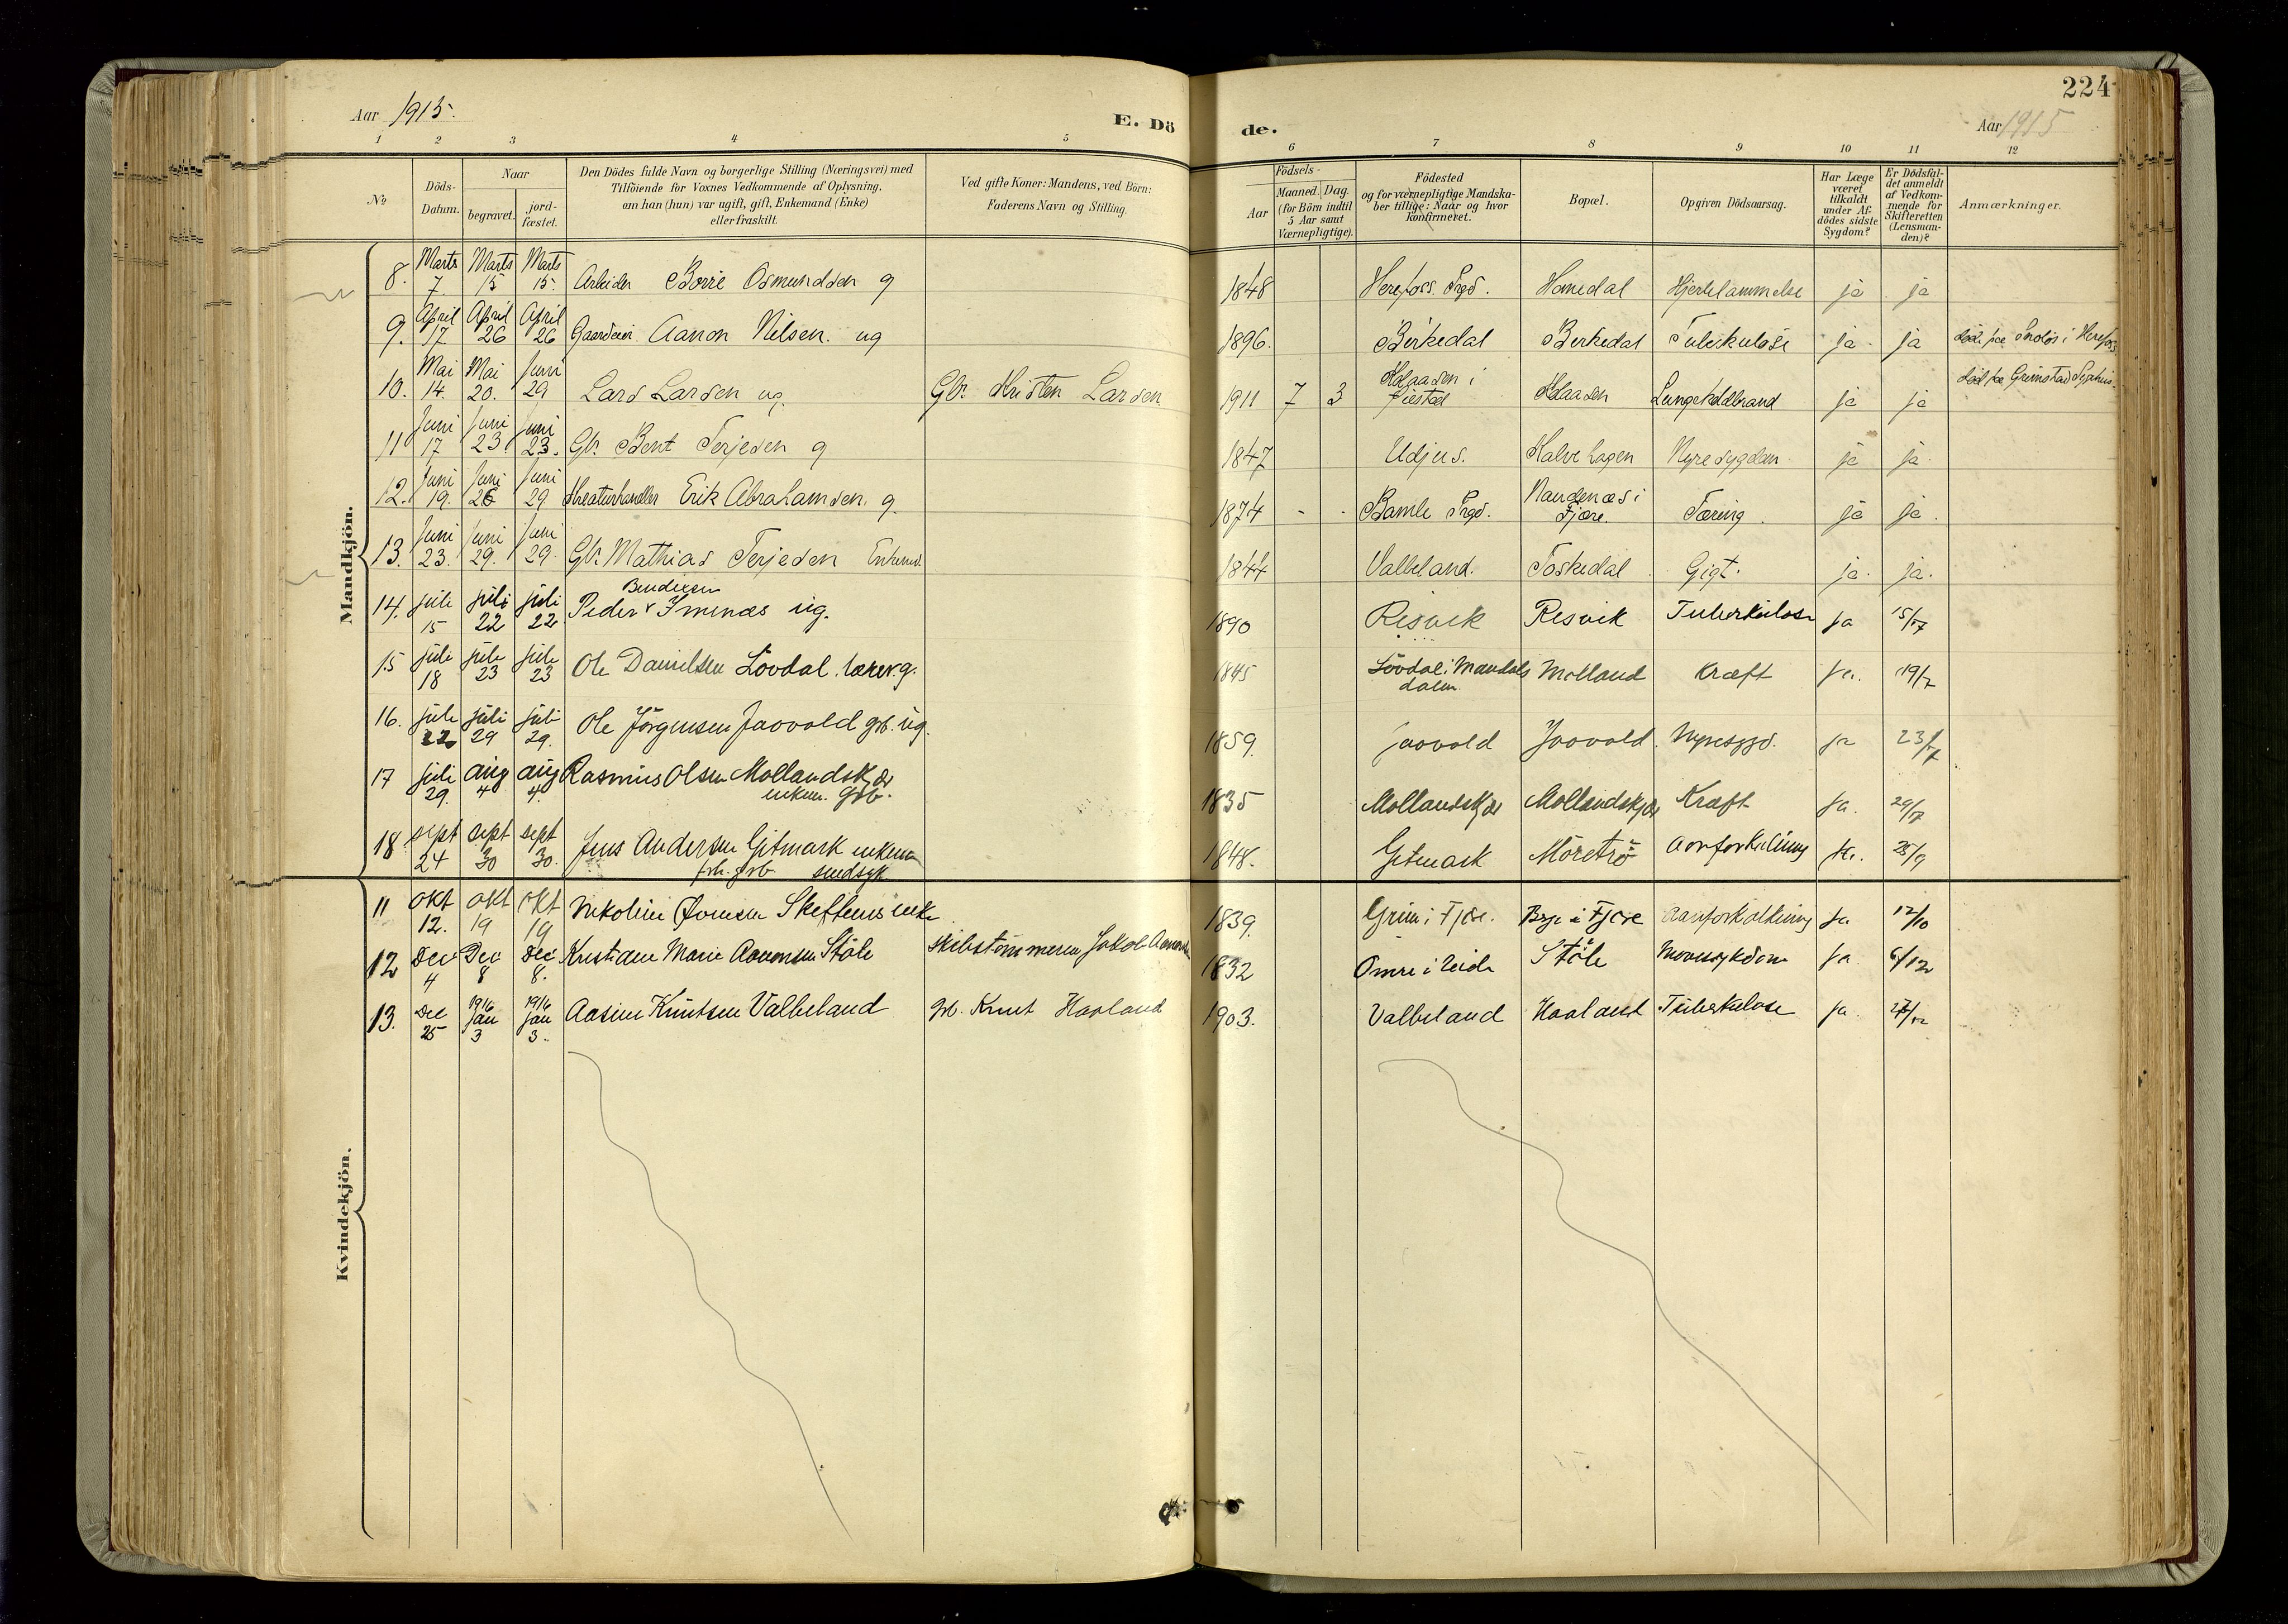 224
Aar 1915.
E. Dö
de.
Aar 1915
1 2 3 4 5 6 7 8 9 10 11 12
No
Döds-
Datum.
Naar
begravet.
jord-
fæstet.
Den Dödes fulde Navn og borgerlige Stilling (Næringsvei) med
Tilföiende for Voxnes Vedkommende af Oplysning,
om han (hun) var ugift, gift, Enkemand (Enke)
eller fraskilt.
Ved gifte Koner: Mandens, ved Börn:
Faderens Navn og Stilling.
Födsels-
Aar
Maaned. Dag.
(for Börn indtil
5 Aar samt
Værnepligtige).
Födested
og for værnepligtige Mandska-
ber tillige: Naar og hvor
konfirmeret.
Bopæl.
Opgiven Dödsaarsag.
Har Læge
været
tilkaldt
under Af-
dödes sidste
Sygdom?
Er Dödsfal-
det anmeldt
af Vedkom-
mende for
Skifteretten
(Lensman-
den)?
Anmærkninger.
Mandkjön.
8. Marts 7. Marts 15 Marts 15. Arbeider Börre Osmundsen g 1848 Herefoss Prgd. Hanedal Hjertelammelse ja ja
9. April 17 April 26 April 26 Aanon Nilsen. ug 1896. Birkedal Birkedal Tuberkulose ja ja död paa i Herefoss
10. Mai 14. Mai 20. Juni 29 Lars Larsen ug. Gbr. Kristen Larsen 1911 7 3 i Lungekoldbrand ja ja död paa Grimstad Sygehus.
11 Juni 17 Juni 23. Juni 23. Gbr. Bent Terjesen g 1847 Udjus. Kalvehagen Nyresygdom ja ja
12. Juni 19. Juni 26 Juni 29 Kreaturhandler Erik Abrahamsen. g. 1874 - - Bamle Prgd. i Fjære. Tæring. ja ja.
13. Juni 23. Juni 29. Juni 29. Gbr. Mathias Terjesen Enkemd. 1844 Valbeland. Toskedal Gigt. ja. ja.
14. juli 15 juli 22 juli 22 Peder Bendixen Imenæs ug. 1890 Resvik Resvik Tuberkulose ja 15/7
15 juli 18 juli 23 juli 23 Ole Danielsen Lövdal. lærer. g. 1845 Lövdal i Mandals
dalen Molland Kræft ja. 19/7
16. juli 22 juli 29 juli 29. Ole Jörgensen Jaavold grb. ug. 1859 Jaavold Jaavold. Nyresygd. ja 23/7
17 juli 29. aug 4 aug 4. Rasmus Olsen Mollandskjær
enkem. grb. 1835 Mollandskjær Mollandskjær Kræft ja. 29/7
18 sept 24 sept 30 sept 30. Jens Andersen Gitmark enkem
frh. grb. sindsyk 1848. Gitmark Möretrö Aareforkalkning ja. 25/9
Kvindekjön.
11 okt 12. okt 19 okt 19 Nikoline Skeftenes enke 1839. Grim i Fjære. Berge i Fjære Aareforkalkning ja 12/10
12 Dec 4 Dec 8 Dec 8. Kristiane Marie Aanonsen Stöle Skibstömmermn Jakob Aanonsen 1832 Omre i Eide Stöle Mavesykdom ja 6/12
13. Dec 25 1916 jan 3 1916 jan 3. Aasine Knutsen Valbeland grb. Knut Haaland 1903. Valbeland Haaland Tuberkulose ja 27/12